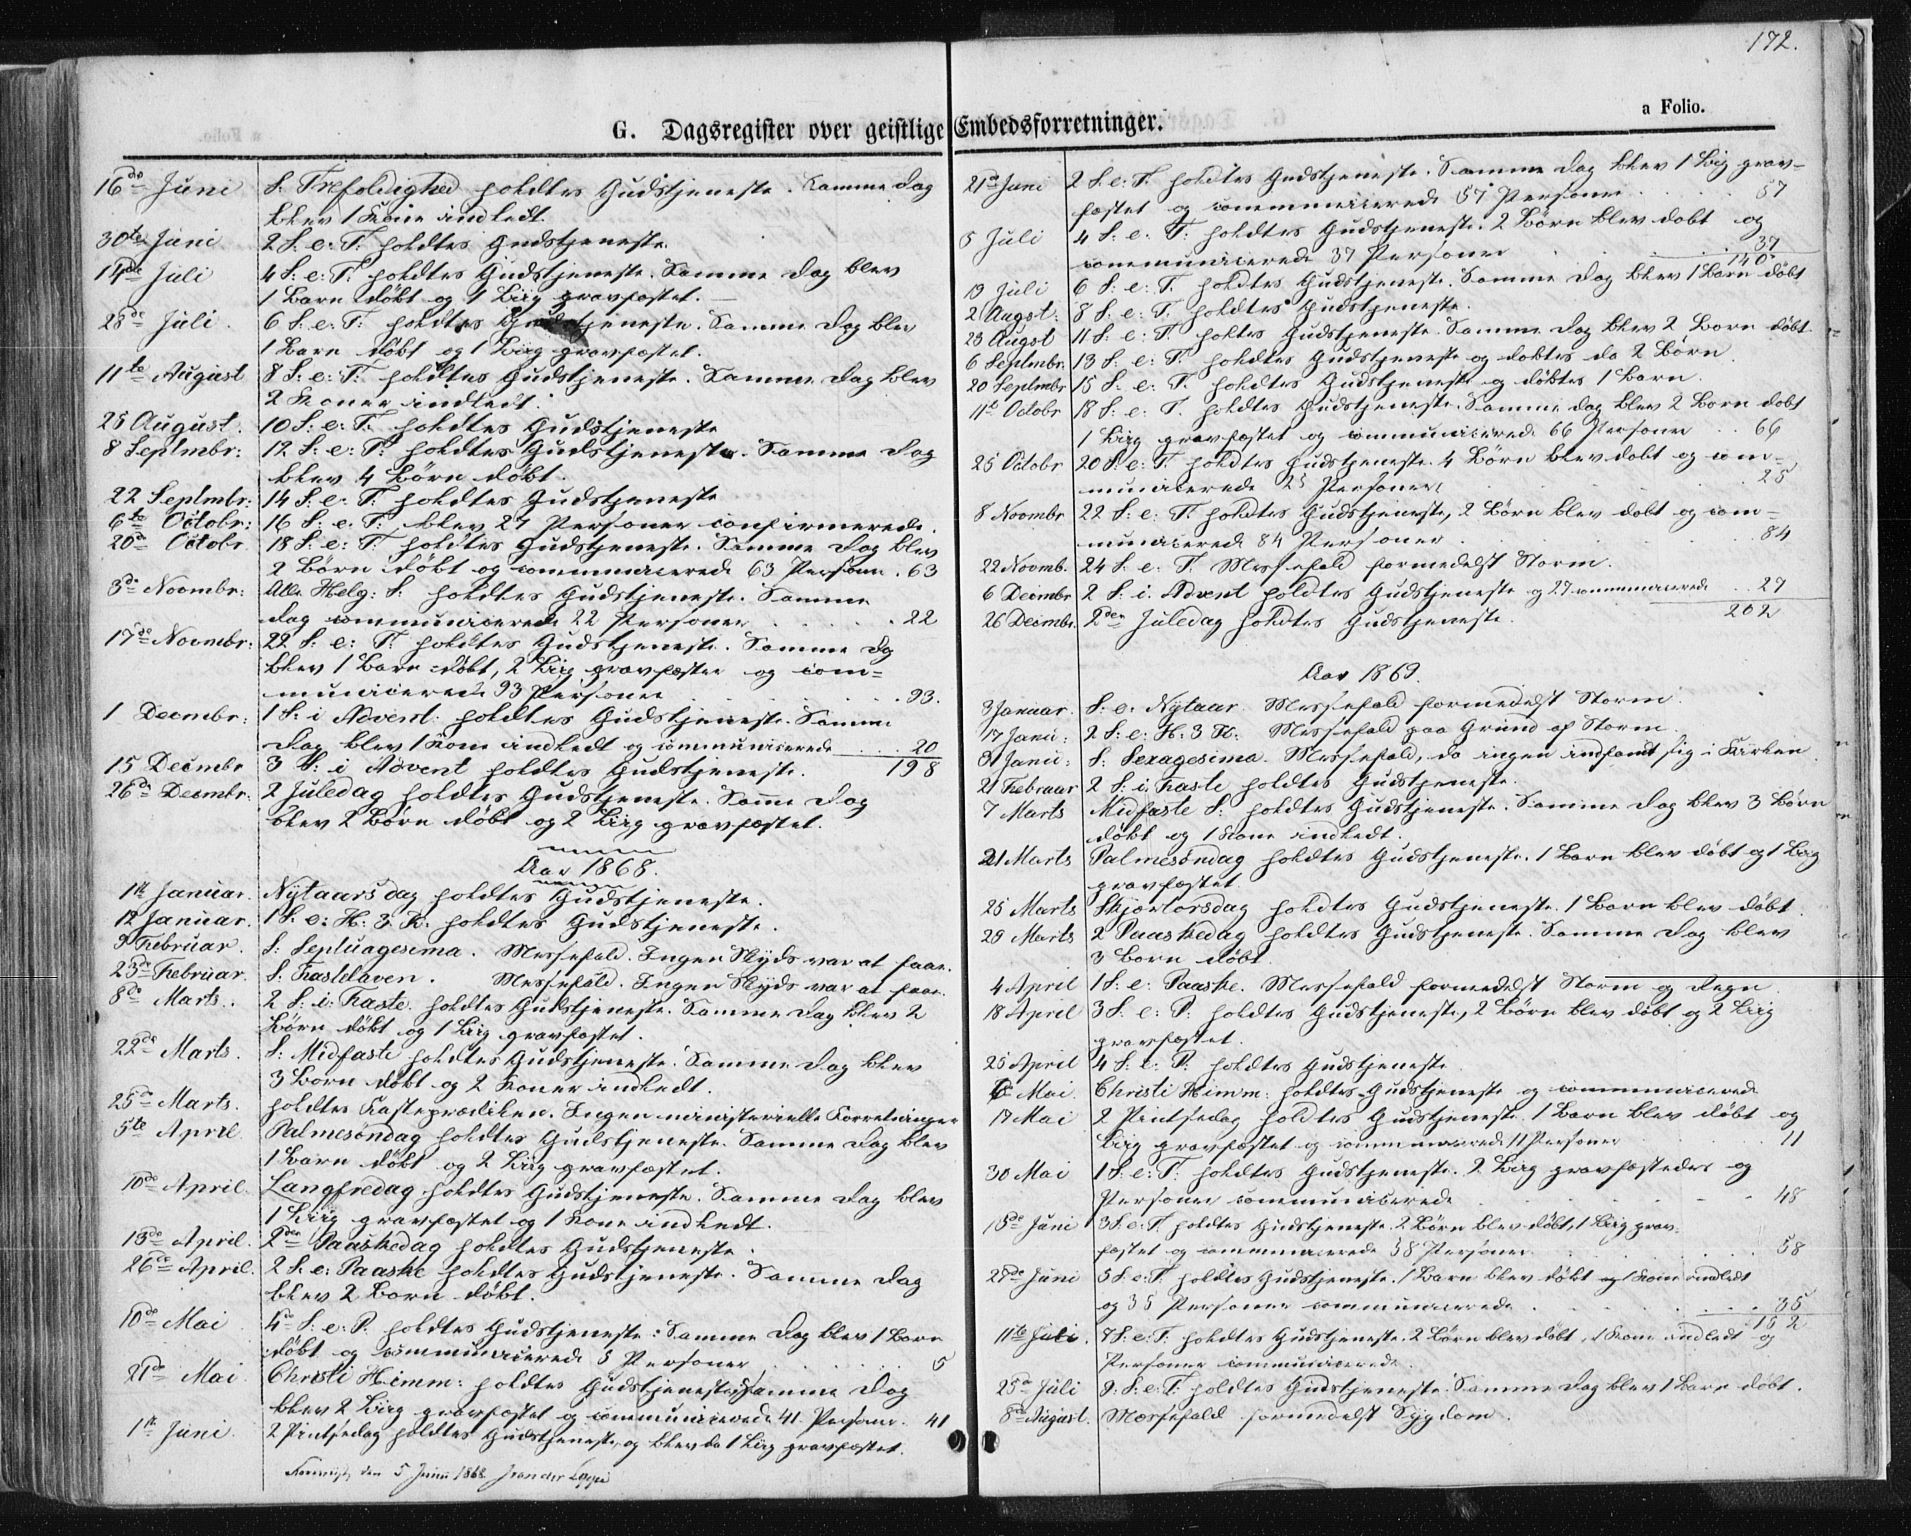 172.
a Folio.
G. Dagsregister over geistlige Embedsforretninger.
16de Juni S. Trefoldighed holdtes Gudstjeneste. Samme Dag
blev 1 Kone indledt.
30te Juni 2 S: e: T: holdtes Gudstjeneste.
14de Juli 4 S: e: T: holdtes Gudstjeneste. Samme Dag blev
1 Barn døbt og 1 Liig gravfæstet. —
28de Juli. 6 S: e: T: holdtes Gudstjeneste. Samme Dag blev
1 Barn døbt og 1 Liig gravfæstet.
11te August 8 S: e: T: holdtes Gudstjeneste. Samme Dag blev
2 Koner indledt.
25 August. 10 S: e: T: holdtes Gudstjeneste
8 Septmbr: 12 S: e: T: holdtes Gudstjeneste. Samme Dag
blev 4 Børn døbt.
22 Septmbr: 14 S: e: T: holdtes Gudstjeneste
6te Octobr: 16 S: e: T: blev 27 Personer confirmerede.
20de Octobr 18 S: e: T: holdtes Gudstjeneste. Samme Dag blev
2 Børn døbt og communicerede 63 Personer. 63
3de Novmbr: Alle Helg: S: holdtes Gudstjeneste. Samme
Dag communicerede 22 Personer . . . . 22
17de Novmbr: 22 S: e: T: holdtes Gudstjeneste. Samme Dg
blev 1 Barn døbt, 2 Liig gravfæstes og com=
municerede 93 Personer . . . . 93.
1 Decmbr: 1 S: i Advent: holdtes Gudstjeneste. Samme
Dag blev 1 Kone indledt og communicerede . . . 20
15 Decmbr 3 S: i Advent holdtes Gudstjeneste. 198
26de Decmbr: 2 Juledag holdtes Gudstjeneste. Same Dag
blev 2 Børn døbt og 2 Liig gravfæstet.
Aar 1868.
1te Januar. Nytaarsdag holdtes Gudstjeneste.
12 Januar. 1 S: e: H: 3 K: holdtes Gudstjeneste.
9 Februar. S: Septuagesima. Messefald. Ingen Skyds var at faae.
23de Februar. S. Fastelaven. Messefald. Ingen Skyds var at faae.
8de Marts. 2 S: i: Faste. holdtes Gudstjeneste. Samme Dag blev 2
Børn døbt og 1 Liig gravfæstet.
22de Marts. S: Midfaste holdtes Gudstjeneste. Samme Dag blev
3 Børn døbt og 2 Koner indledt.
25de Marts. holdtes Fasteprædiken. Ingen ministerielle Forretninger
5te April Palmesøndag holdtes Gudstjeneste. Samme Dag blev
1 Barn døbt og 2 Liig gravfæstet.
10de April. Langfredag holdtes Gudstjeneste. Samme Dag blev
1 Liig gravfæstet og 1 Kone indledt.
13de April. 2den Paaskedag holdtes Gudstjeneste.
26de April. 2 S: e: Paaske holdtes Gudstjeneste. Samme Dag
blev 2 Børn døbt.
10de Mai 4de S: e: P. holdtes Gudstjeneste: Samme Dag blev 1 Barn
døbt og communicerede 5 Personer . . . . 5
21de Mai. Christi Himm: holdtes Gudstjeneste, Samme Dag
blev 2 Liig gravfæstet og communicerede 41 Personer. 41
1te Juni. 2 Pintsedag holdtes Gudstjeneste, og blev da 1 Liig gravfæstet.
den 5 Juni 1868
21de Juni 2 S: e: T. holdtes Gudstjeneste. Samme Dag blev 1 Liig grav=
fæstet og communicerede 57 Personer . . . 57
5 Juli 4 S: e: T: holdtes Gudstjeneste. 2 Børn blev døbt og
communicerede 37 Personer . . . 37
140.
19 Juli 6 S: e: T. holdtes Gudstjeneste. Samme Dag blev 1 Barn døbt
2 Augst: 8 S: e: T. holdtes Gudstjeneste.
23 Augst 11 S: e: T. holdtes Gudstjeneste. Samme Dag blev 2 Børn døbt
6 Septmbr: 13 S: e: T: holdtes Gudstjeneste og døbtes da 2 Børn.
20 Septmbr 15 S: e: T. holdtes Gudstjeneste og døbtes 1 Barn.
11te Octobr 18 S: e: T. holdtes Gudstjeneste. Samme Dag blev 2 Børn døbt
1 Liig gravfæstet og communicerede 66 Personer . . 66
25 Octobr 20 S: e: T. holdtes Gudstjeneste. 4 Børn blev døbt og com=
municerede 25 Personer . . . . 25
8 Novmbr 22 S: e: T: holdtes Gudstjeneste, 2 Børn blev døbt og com=
municerede 84 Personer . . . . 84
22 Novmb. 24 S: e: T. Messefald formedelst Storm.
6 Decmbr 2 S: i. Advent holdtes Gudstjeneste og 27 communicerede . . 27
202
26 Decmbr. 2den Juledag holdtes Gudstjeneste.
Aar 1869.
3 Januar. S: e: Nytaar. Messefald formedelst Storm.
17 Janu: 2 S: e: H: 3 K: Messefald paa Grund af Storm.
31 Janu: S: Sexagesima. Messefald, da ingen indfandt sig i Kirken.
21 Februar 2 S: i. Faste holdtes Gudstjeneste.
7 Marts Midfaste S: holdtes Gudstjeneste. Samme Dag blev 3 Børn
døbt og 1 Kone indledt.
21 Marts Palmesøndag holdtes Gudstjeneste. 1 Barn blev døbt og 1 Liig
gravfæstet
25 Marts Skjærtorsdag holdtes Gudstjeneste. 1 Barn blev døbt.
29 Marts 2 Paaskedag holdtes Gudstjeneste. Samme Dag blev
3 Børn døbt.
4 April 1 S: e: Paaske. Messefald formedelst Storm og Regn.
18 April 3 S: e: P: holdtes Gudstjeneste, 2 Børn blev døbt og 2 Liig
gravfæstet.
25 April 4 S: e: P: holdtes Gudstjeneste
6 Mai. Christi Himm: holdtes Gudstjeneste og communicerede
17 Mai 2 Pintsedag holdtes Gudstjeneste. 1 Barn blev døbt og
Liig gravfæstet og communicerede 11 Personer . 11
30 Mai 1 S: e: T: holdtes Gudstjeneste. 2 Liig gravfæstedes og
Personer communicerede . . . . 48
13de Juni 3 S: e: T. holdtes Gudstjeneste. 2 Børn blev døbt, 1 Liig grav=
fæstet og communicerede 58 Personer . . . . 58
27de Juni 5 S: e: T. holdtes Gudstjeneste. 1 Barn blev døbt og 1 Kone indledt
og 35 Personer communicerede . . . . 35
152
11te Juli. 7 S: e: T: holdtes Gudstjeneste. 2 Børn blev døbt, 1 Kone indledt og
Personer communicerede.
25de Juli 9: S: e: T: holdtes Gudstjeneste. Samme Dag blev 1 Barn døbt.
8de August. Messefald formedelst Sygdom.